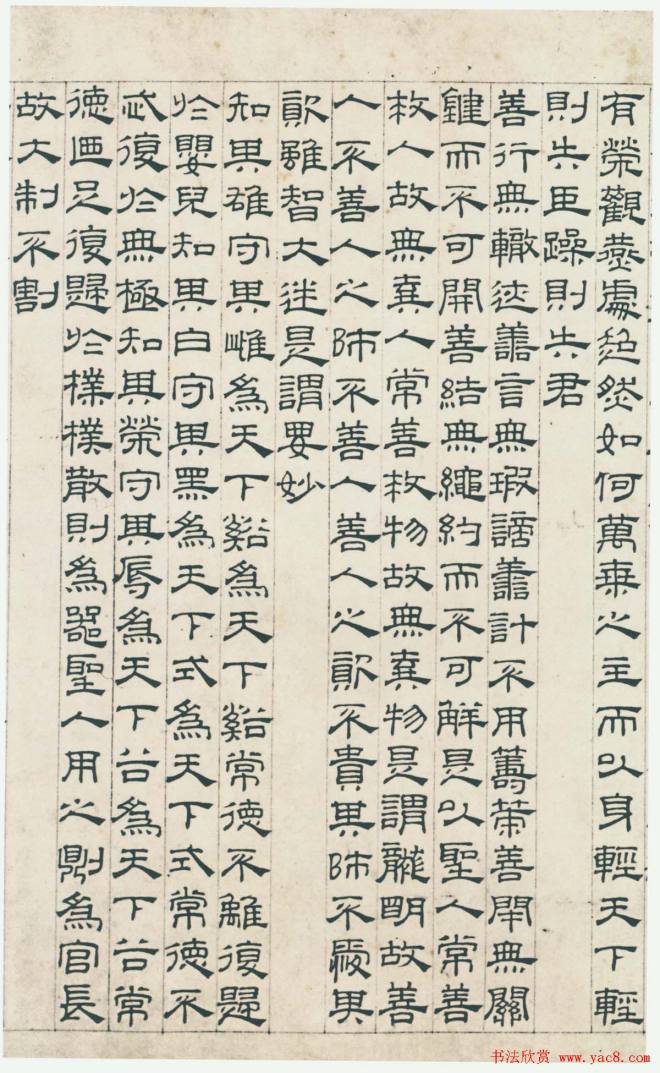 有榮觀燕處超然如何萬乘之主而以身輕天下輕
則失臣躁則失君
善行無轍迹善言無瑕謫善計不用籌策善閉無關
鍵而不可開善結無繩約而不可解是以聖人常善
救人故無棄人常善救物故無棄物是謂襲明故善
人不善人之師不善人善人之資不貴其師不愛其
資雖智大迷是謂要妙
知其雄守其雌為天下谿為天下谿常德不離復歸
於嬰兒知其白守其黑為天下式為天下式常德不
忒復於無極知其榮守其辱為天下谷為天下谷常
德迺足復歸於樸樸散則為器聖人用之則為官長
故大制不割
书法欣赏 www.yac8.com